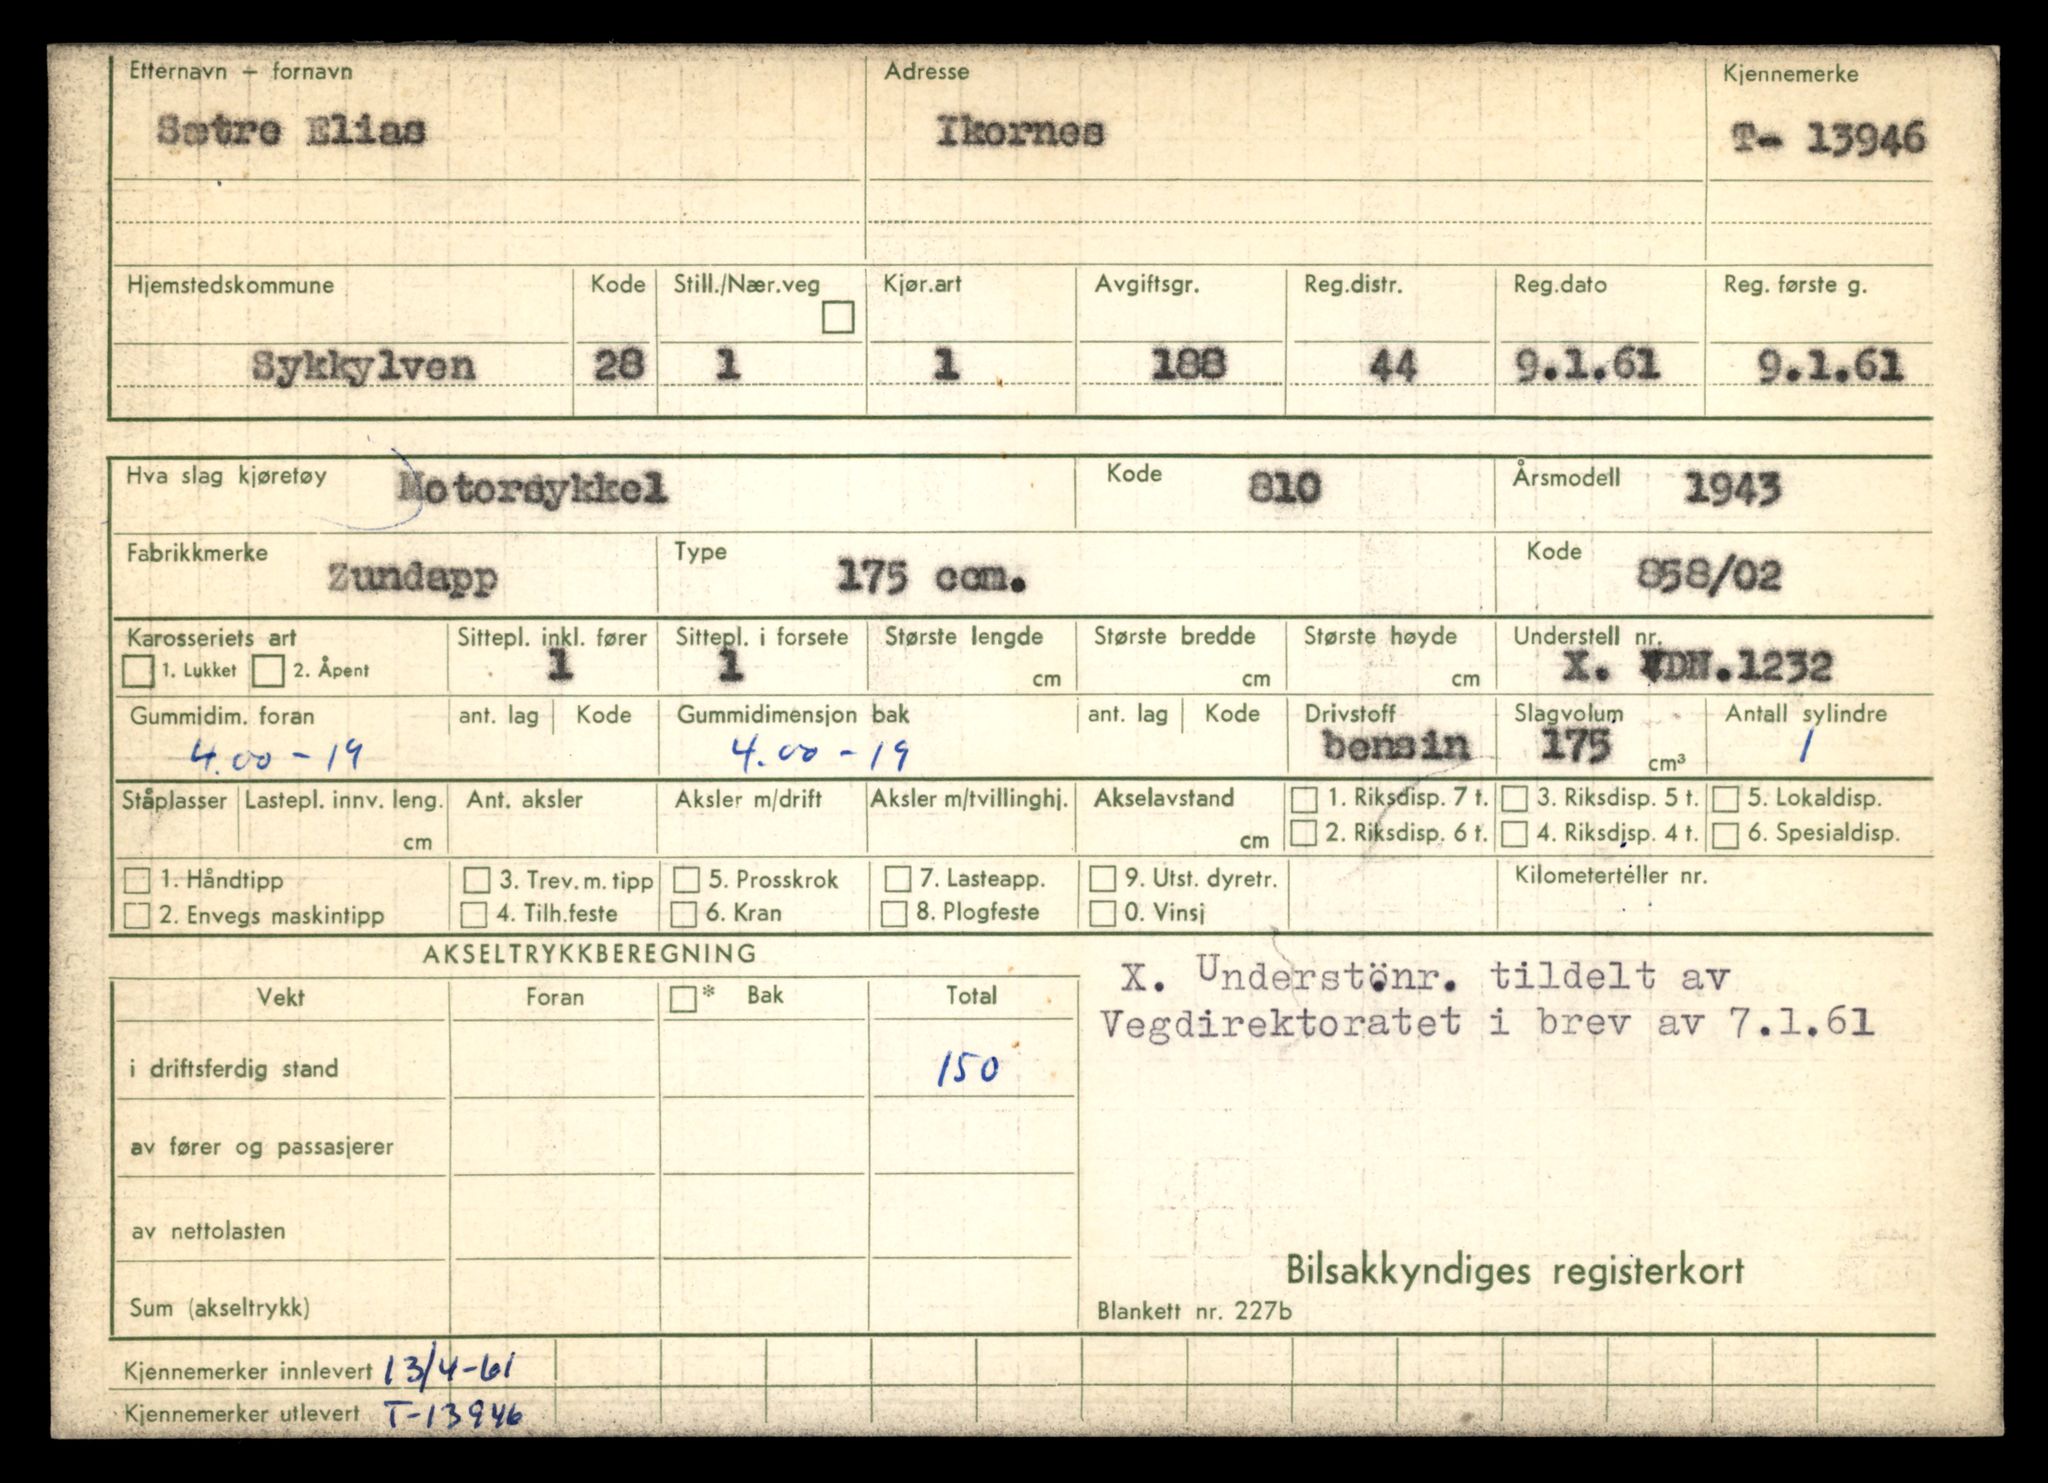 Etternavn – fornavn Adresse Kjennemerke
Sætre Elias Ikornes T- 13946
Hjemstedskommune Kode Still./Nær.veg Kjør.art Avgiftsgr. Reg.distr. Reg.dato Reg. første g.
Sykkylven 28 1 1 188 44 9.1.61 9.1.61
Hva slag kjøretøy Motorsykkel Kode 810 Årsmodell 1943
Fabrikkmerke Zundapp Type 175 ccm. Kode 858/02
Karosseriets art Sittepl. inkl. fører Sittepl. i forsete Største lengde Største bredde Største høyde Understell nr.
1. Lukket 2. Åpent 1 1 cm cm cm X. VDN.1232
Gummidim. foran ant. lag Kode Gummidimensjon bak ant. lag Kode Drivstoff Slagvolum Antall sylindre
4.00 - 19 4.00 - 19 bensin 175 cm³ 1
Ståplasser Lastepl. innv. leng. Ant. aksler Aksler m/drift Aksler m/tvillinghj. Akselavstand 1. Riksdisp. 7 t. 3. Riksdisp. 5 t. 5. Lokaldisp.
cm cm 2. Riksdisp. 6 t. 4. Riksdisp. 4 t. 6. Spesialdisp.
1. Håndtipp 3. Trev. m. tipp 5. Prosskrok 7. Lasteapp. 9. Utst. dyretr. Kilometerteller nr.
2. Envegs maskintipp 4. Tilh.feste 6. Kran 8. Plogfeste 0. Vinsj
AKSELTRYKKBEREGNING
Vekt Foran * Bak Total
i driftsferdig stand 150
av fører og passasjerer
av nettolasten
Sum (akseltrykk)
X. Understönr. tildelt av
Vegdirektoratet i brev av 7.1.61
Bilsakkyndiges registerkort
Blankett nr. 227b
Kjennemerker innlevert 13/4-61
Kjennemerker utlevert T-13946